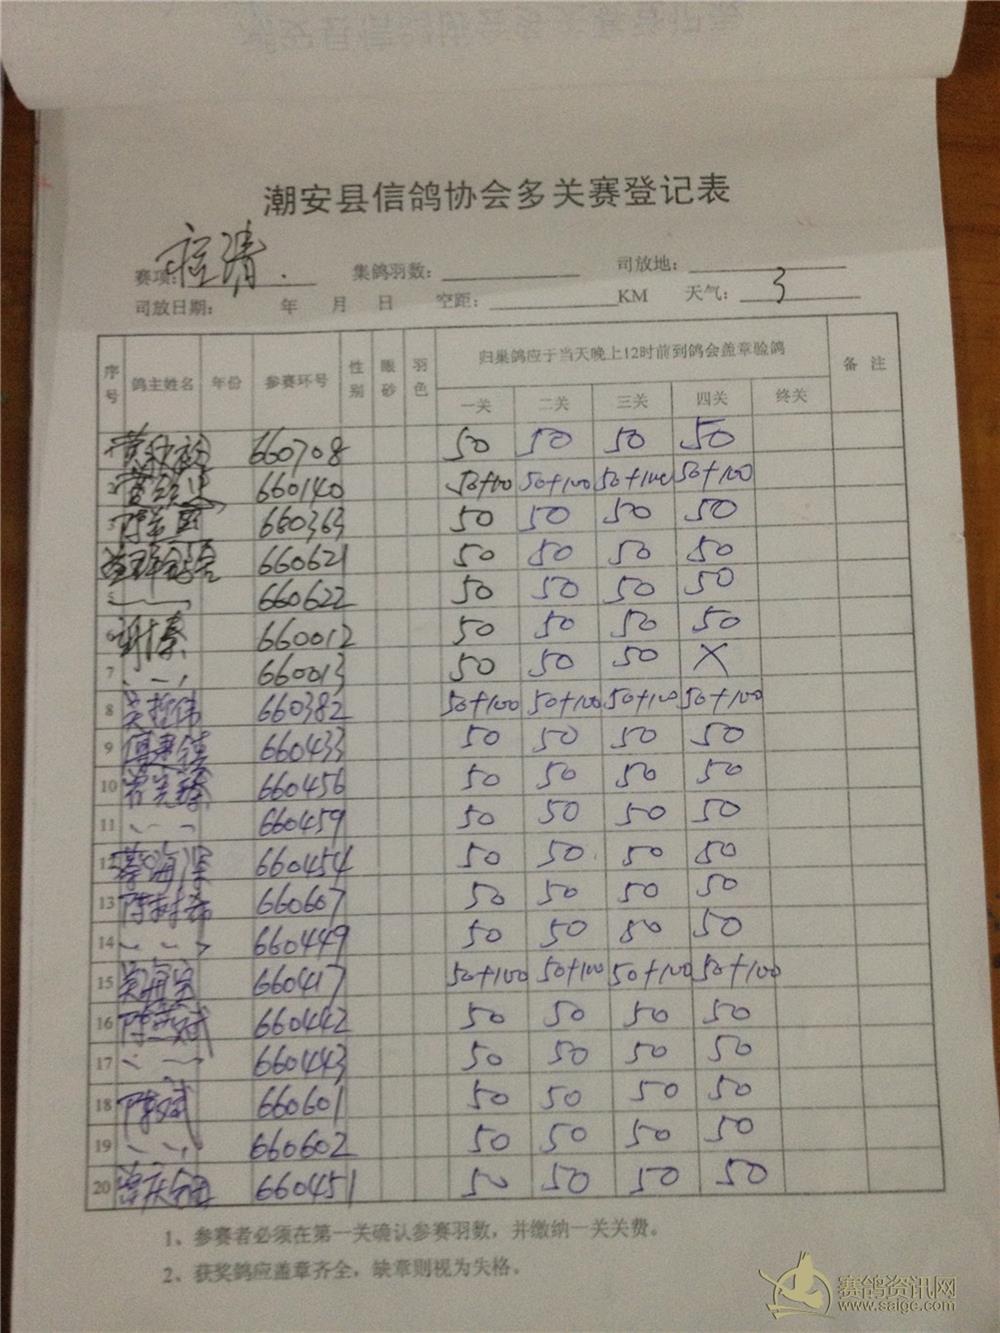 潮安县信鸽协会多关赛登记表
赛项: 清 集鸽羽数: 司放地:
司放日期: 年 月 日 空距: KM 天气: 3
序号 鸽主姓名 年份 参赛环号 性别 眼砂 羽色 归巢鸽应于当天晚上12时前到鸽会盖章验鸽 备注
一关 二关 三关 四关 终关
660708 50 50 50 50
2 660140 50+100 50+100 50+100 50+100
3 660363 50 50 50 50
660621 50 50 50 50
5 660622 50 50 50 50
6 660012 50 50 50 50
7 660013 50 50 50 X
8 660382 50+100 50+100 50+100 50+100
9 660433 50 50 50 50
10 660456 50 50 50 50
11 660459 50 50 50 50
12 蔡海深 660454 50 50 50 50
13 陈树希 660607 50 50 50 50
14 660449 50 50 50 50
15 660417 50+100 50+100 50+100 50+100
16 660442 50 50 50 50
17 660443 50 50 50 50
18 660601 50 50 50 50
19 660602 50 50 50 50
20 660451 50 50 50 50
1、参赛者必须在第一关确认参赛羽数，并缴纳一关关费。
2、获奖鸽应盖章齐全，缺章则视为失格。
赛鸽资讯网
www.saige.com